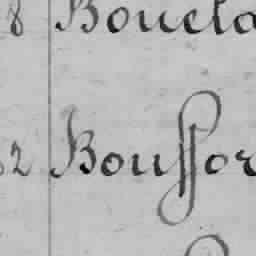 8 Bouela
2 Boussor